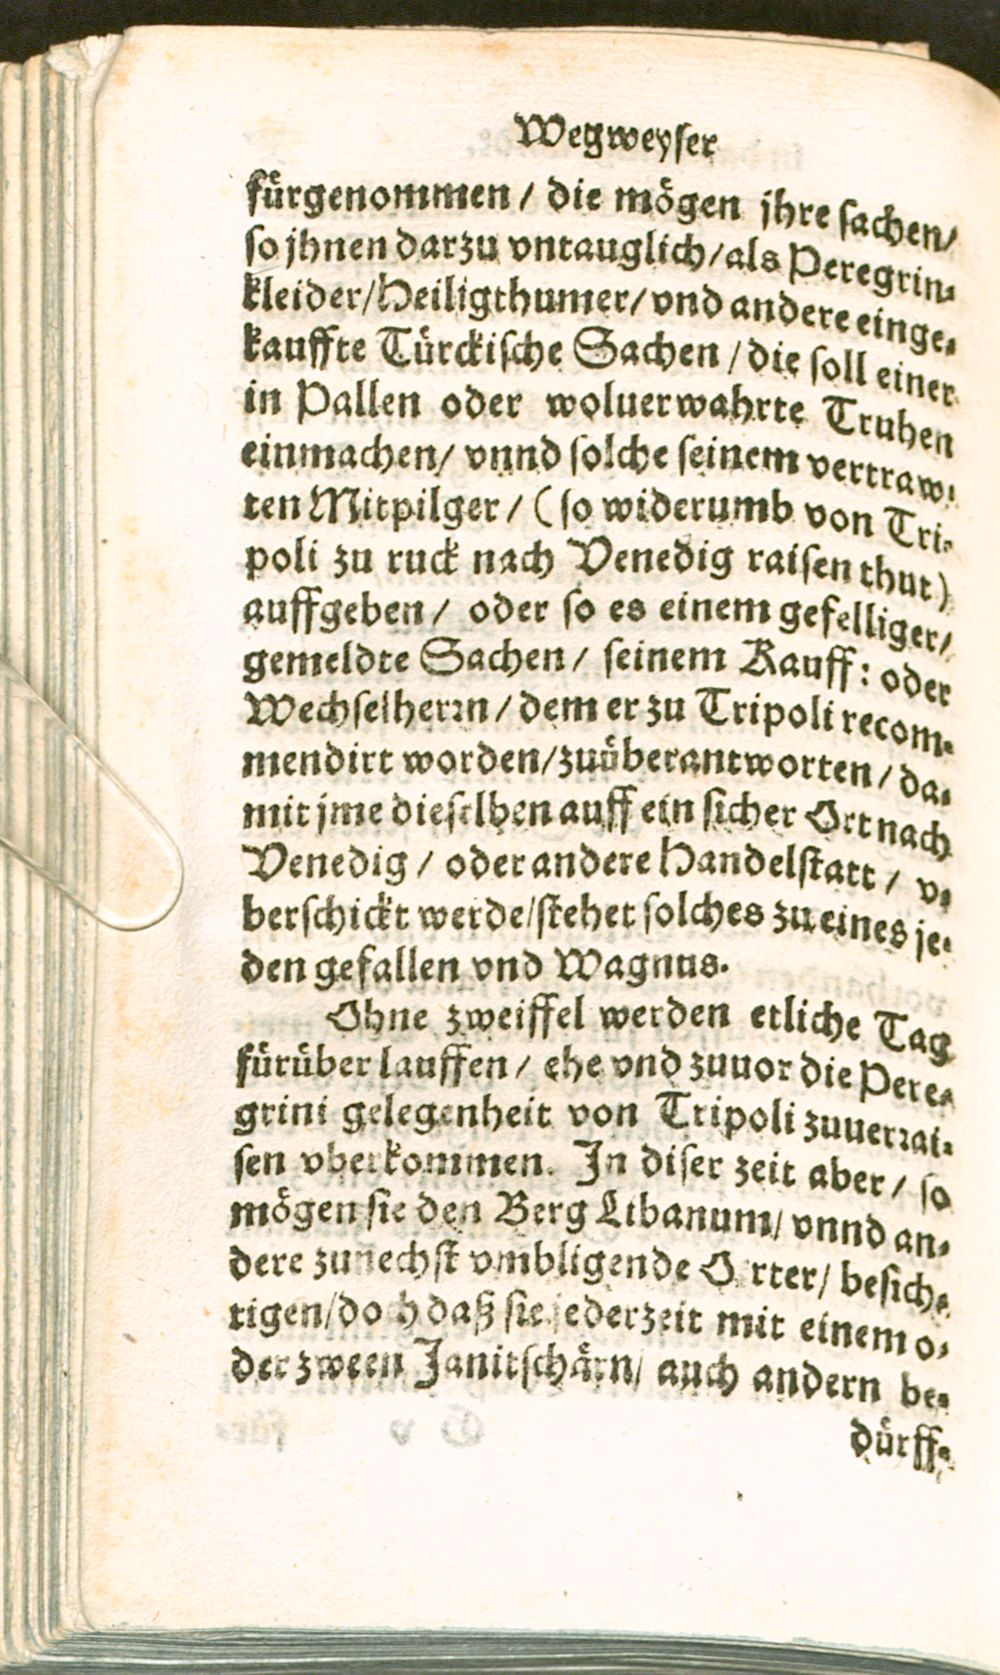 Wegweyser
fürgenommen / die mögen jhre sachen/
so jhnen darzu vntauglich/als Peregrin-
kleider/Heiligthumer/vnd andere einge-
kauffte Türckische Sachen / die soll einer
in Pallen oder woluerwahrte Truhen
einmachen/ vnnd solche seinem vertraw-
ten Mitpilger / (so widerumb von Tri-
poli zu ruck nach Venedig raisen thut)
auffgeben / oder so es einem gefelliger/
gemeldte Sachen / seinem Kauff: oder
Wechselherrn / dem er zu Tripoli recom-
mendirt worden/zuüberantworten / da-
mit jme dieselben auff ein sicher Ort nach
Venedig / oder andere Handelstatt / v-
berschickt werde/stehet solches zu eines je-
den gefallen vnd Wagnus.
Ohne zweiffel werden etliche Tag
fürüber lauffen / ehe vnd zuuor die Pere-
grini gelegenheit von Tripoli zuuerrai-
sen vberkommen. In diser zeit aber / so
mögen sie den Berg Libanum/ vnnd an-
dere zunechst vmbligende Orter/ besich-
tigen/doch daß sie jederzeit mit einem o-
der zween Janitschärn/ auch andern be-
dürff-